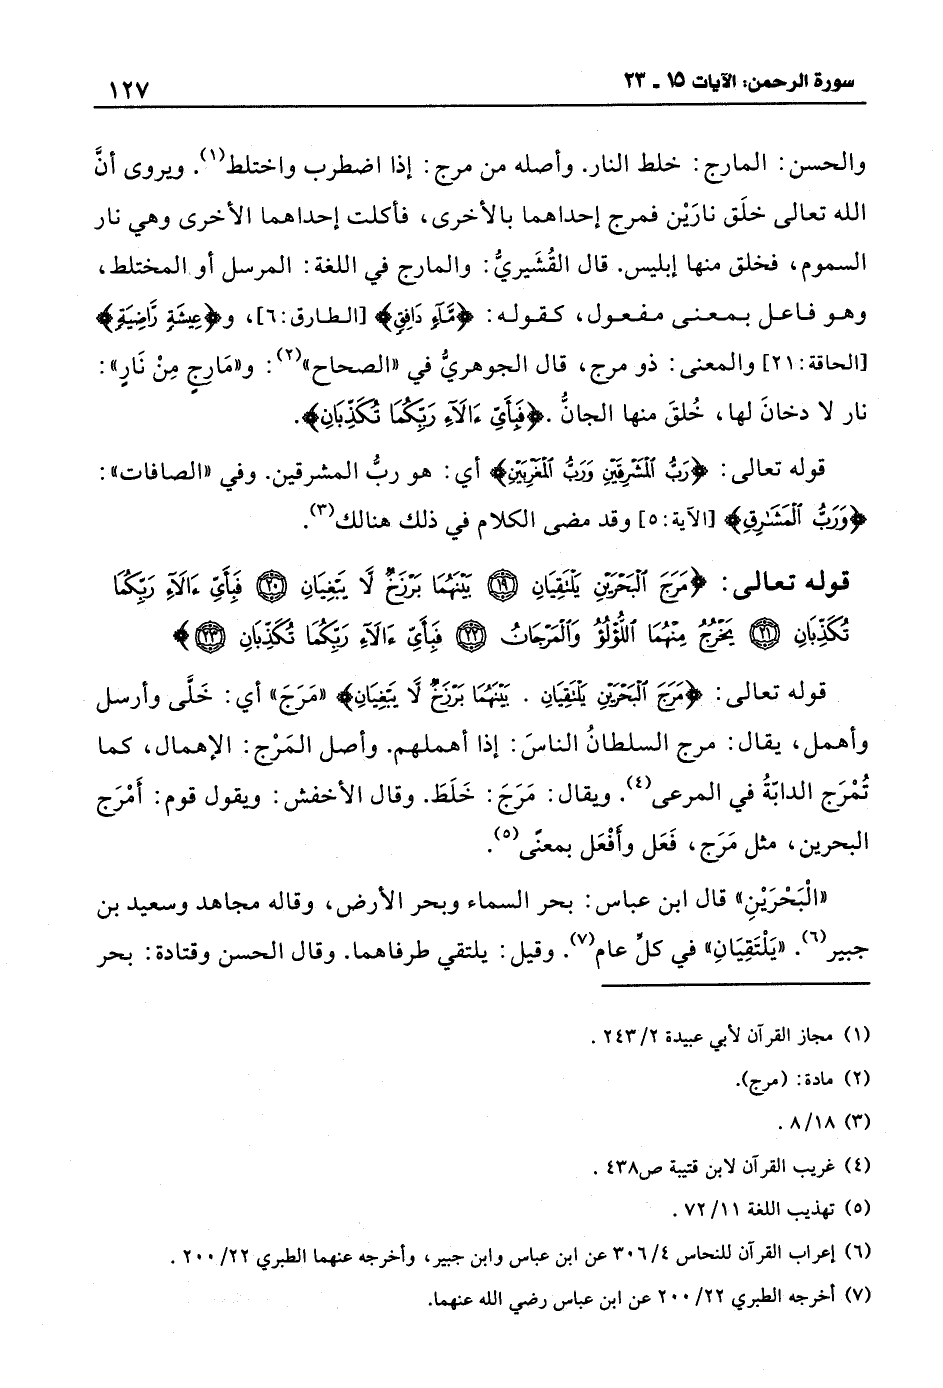 سورة الرحمن: الآيات ١٥ ـ ٢٣
١٢٧
والحسن: المارج: خلط النار. وأصله من مرج: إذا اضطرب واختلط(١). ويروى أنَّ
الله تعالى خلَق نارَيْن فمرج إحداهما بالأخرى، فأكلت إحداهما الأخرى وهي نار
السموم، فخلق منها إبليس. قال القُشَيريُّ: والمارج في اللغة: المرسل أو المختلط،
وهو فاعل بمعنى مفعول، كقوله: ﴿مَّآءٍ دَافِقٍ﴾ [الطارق:٦]، و﴿عِيشَةٍ رَّاضِيَةٍ﴾
[الحاقة:٢١] والمعنى: ذو مرج، قال الجوهريُّ في «الصحاح»(٢): و«مَارِجٍ مِنْ نَارٍ»:
نار لا دخانَ لها، خُلقَ منها الجانُّ. ﴿فَبِأَيِّ ءَالَآءِ رَبِّكُمَا تُكَذِّبَانِ﴾.
قوله تعالى: ﴿رَبُّ ٱلْمَشْرِقَيْنِ وَرَبُّ ٱلْمَغْرِبَيْنِ﴾ أي: هو ربُّ المشرقين. وفي «الصافات»:
﴿وَرَبُّ ٱلْمَشَٰرِقِ﴾ [الآية:٥] وقد مضى الكلام في ذلك هنالك(٣).
قوله تعالى: ﴿مَرَجَ ٱلْبَحْرَيْنِ يَلْتَقِيَانِ ١٩ بَيْنَهُمَا بَرْزَخٌ لَّا يَبْغِيَانِ ٢٠ فَبِأَيِّ ءَالَآءِ رَبِّكُمَا
تُكَذِّبَانِ ٢١ يَخْرُجُ مِنْهُمَا ٱللُّؤْلُؤُ وَٱلْمَرْجَانُ ٢٢ فَبِأَيِّ ءَالَآءِ رَبِّكُمَا تُكَذِّبَانِ ٢٣﴾
قوله تعالى: ﴿مَرَجَ ٱلْبَحْرَيْنِ يَلْتَقِيَانِ . بَيْنَهُمَا بَرْزَخٌ لَّا يَبْغِيَانِ﴾ «مَرَجَ» أي: خَلَّى وأرسل
وأهمل، يقال: مرج السلطانُ الناسَ: إذا أهملهم. وأصل المَرْج: الإهمال، كما
تُمْرَج الدابّةُ في المرعى(٤). ويقال: مَرَجَ: خَلَطَ. وقال الأخفش: ويقول قوم: أَمْرَج
البحرين، مثل مَرَج، فَعَل وأَفْعَل بمعنًى(٥).
«الْبَحْرَيْنِ» قال ابن عباس: بحر السماء وبحر الأرض، وقاله مجاهد وسعيد بن
جبير(٦). «يَلْتَقِيَانِ» في كلِّ عام(٧). وقيل: يلتقي طرفاهما. وقال الحسن وقتادة: بحر
(١) مجاز القرآن لأبي عبيدة ٢/ ٢٤٣ .
(٢) مادة: (مرج).
(٣) ١٨/ ٨ .
(٤) غريب القرآن لابن قتيبة ص٤٣٨ .
(٥) تهذيب اللغة ١١/ ٧٢ .
(٦) إعراب القرآن للنحاس ٤/ ٣٠٦ عن ابن عباس وابن جبير، وأخرجه عنهما الطبري ٢٢/ ٢٠٠ .
(٧) أخرجه الطبري ٢٢/ ٢٠٠ عن ابن عباس رضي الله عنهما.